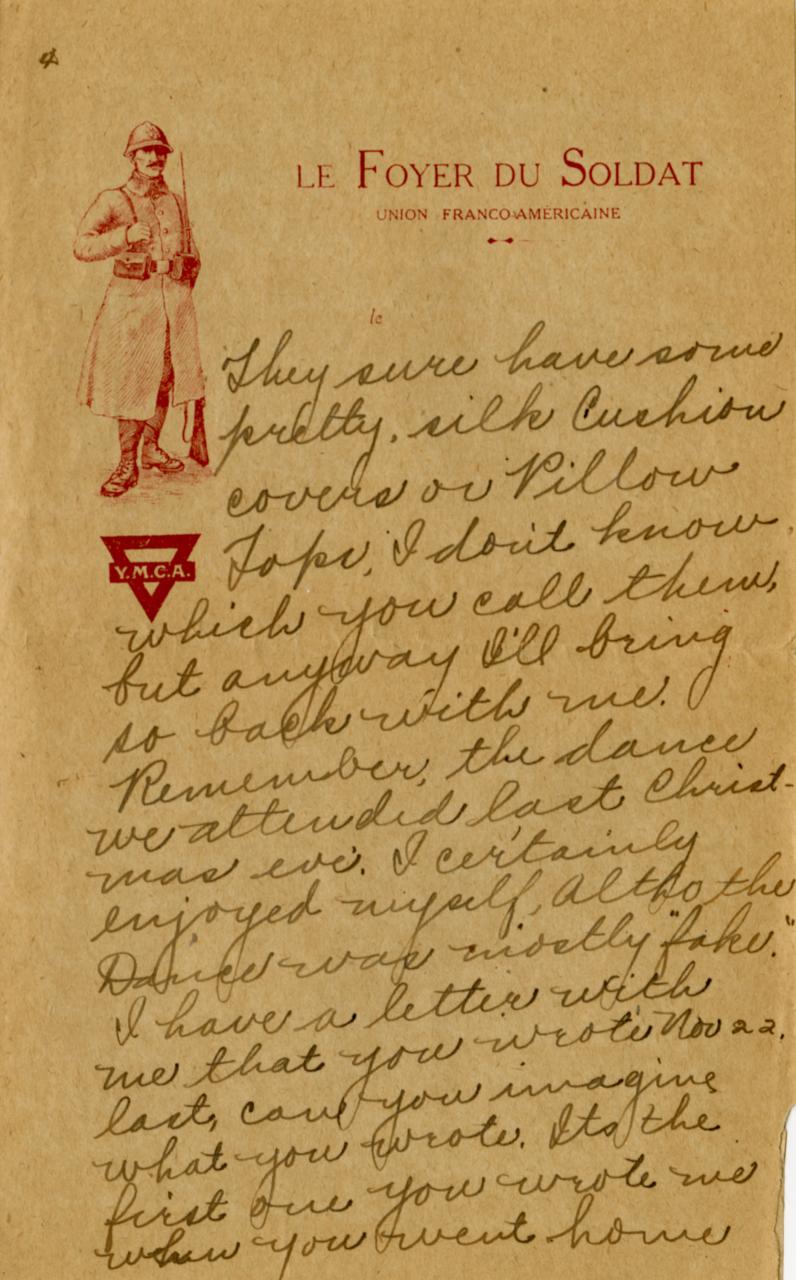 4
LE FOYER DU SOLDAT
UNION FRANCO-AMÉRICAINE
le
They sure have some
pretty, silk Cushion
covers or Pillow
Y.M.C.A.
Tops, I don't know
which you call them,
but anyway I'll bring
so back with me.
Remember, the dance
we attended last Christ-
mas eve. I certainly
enjoyed myself, Altho the
Dance was mostly "fake."
I have a letter with
me that you wrote Nov 22.
last, can you imagine
what you wrote. Its the
first one you wrote me
when you went home